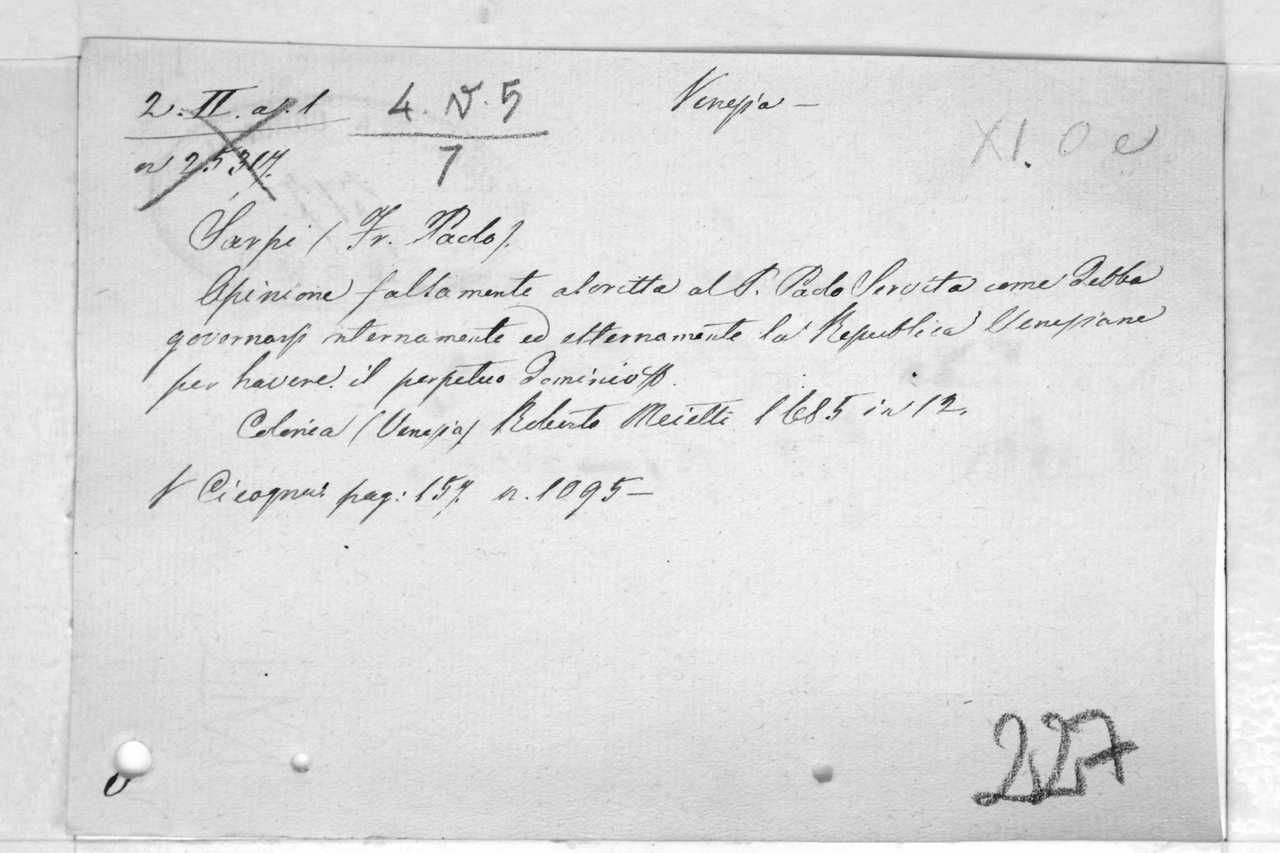 2. II. a. 1 4. N. 5 Venezia –
n 2.5317. 7 XI. O e
Sarpi (Fr. Paolo).
Opinione falsamente ascritta al P. Paolo Servita come debba
governarsi internamente ed esternamente la Republica Veneziana
per havere il perpetuo dominio
Colonia (Venezia) Roberto Meietti 1685 in 12.
V Cicogna: pag: 157. n. 1095 –
227